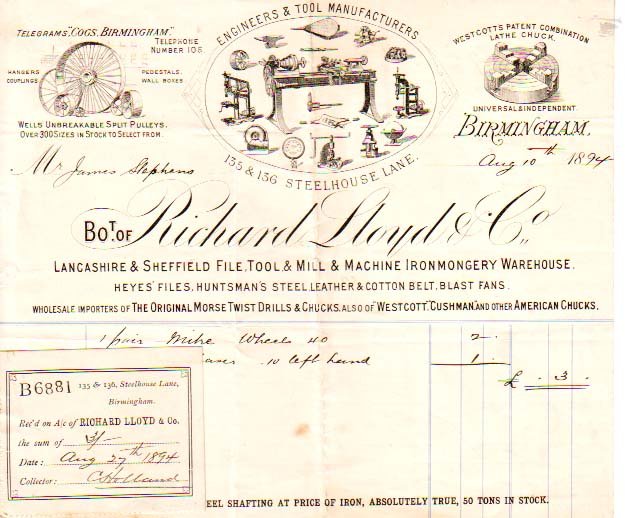 TELEGRAMS "COGS, BIRMINGHAM."
TELEPHONE
NUMBER 105.
HANGERS
COUPLINGS
PEDESTALS,
WALL BOXES
WELLS UNBREAKABLE SPLIT PULLEYS.
OVER 300 SIZES IN STOCK TO SELECT FROM.
ENGINEERS & TOOL MANUFACTURERS
135 & 136 STEELHOUSE LANE.
WESTCOTT'S PATENT COMBINATION
LATHE CHUCK.
UNIVERSAL & INDEPENDENT.
BIRMINGHAM,
Aug 10th 1894
Mr James Stephens
BOT. OF Richard Lloyd & Co.,
LANCASHIRE & SHEFFIELD FILE, TOOL, & MILL & MACHINE IRONMONGERY WAREHOUSE.
HEYES' FILES, HUNTSMAN'S STEEL, LEATHER & COTTON BELT, BLAST FANS.
WHOLESALE IMPORTERS OF THE ORIGINAL MORSE TWIST DRILLS & CHUCKS. ALSO OF "WESTCOTT" "CUSHMAN" AND OTHER AMERICAN CHUCKS.
1 pair Mitre Wheels 40 2 -
10 left hand 1 -
£ . 3 .
B6881 135 & 136, Steelhouse Lane,
Birmingham.
Rec'd on A/c of RICHARD LLOYD & Co.
the sum of 3/-
Date: Aug 27th 1894
Collector: C Holland
EEL SHAFTING AT PRICE OF IRON, ABSOLUTELY TRUE, 50 TONS IN STOCK.